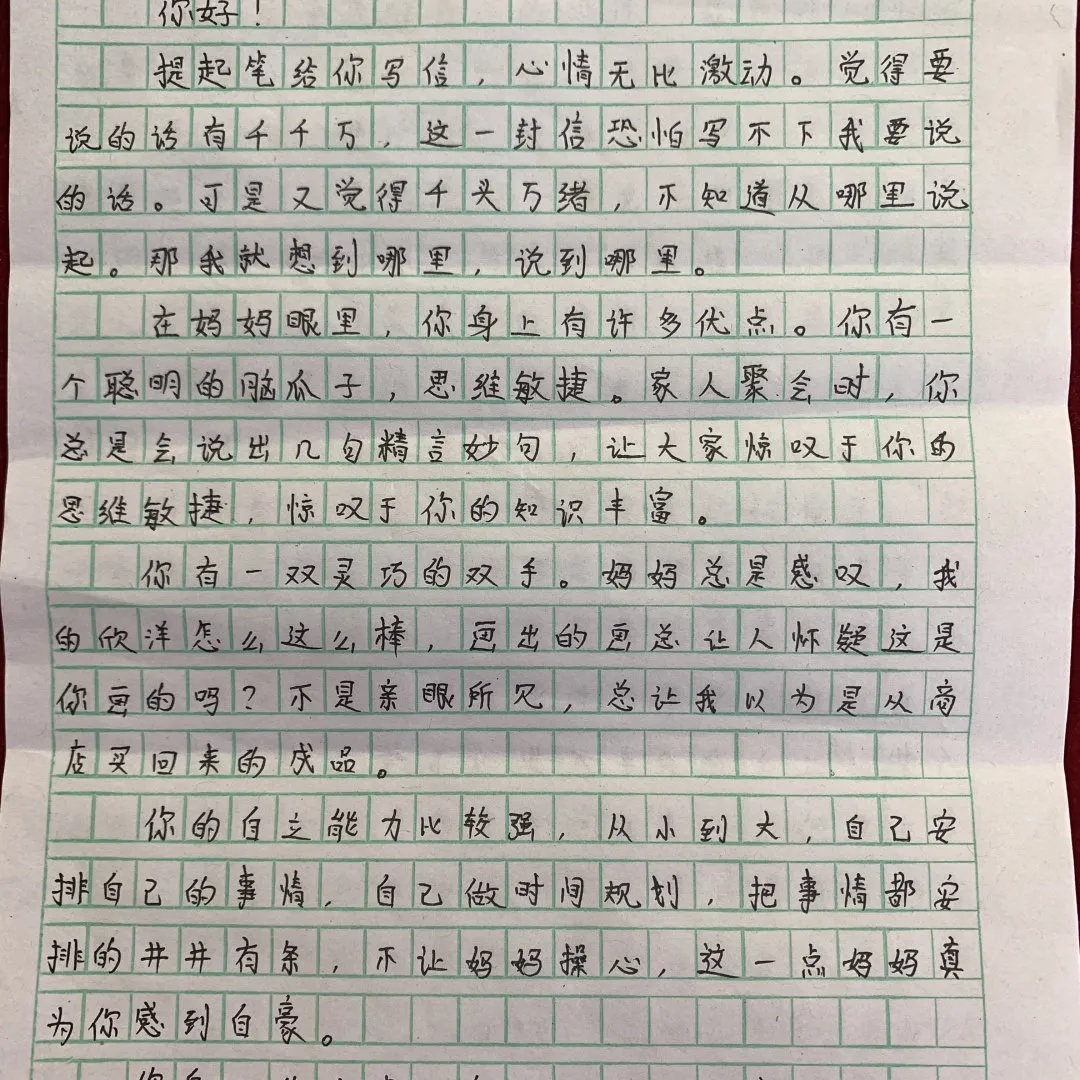 你好！
提起笔给你写信，心情无比激动。觉得要
说的话有千千万，这一封信恐怕写不下我要说
的话。可是又觉得千头万绪，不知道从哪里说
起。那我就想到哪里，说到哪里。
在妈妈眼里，你身上有许多优点。你有一
个聪明的脑瓜子，思维敏捷。家人聚会时，你
总是会说出几句精言妙句，让大家惊叹于你的
思维敏捷，惊叹于你的知识丰富。
你有一双灵巧的双手。妈妈总是感叹，我
的欣洋怎么这么棒，画出的画总让人怀疑这是
你画的吗？不是亲眼所见，总让我以为是从商
店买回来的成品。
你的自立能力比较强，从小到大，自己安
排自己的事情，自己做时间规划，把事情都安
排的井井有条，不让妈妈操心，这一点妈妈真
为你感到自豪。